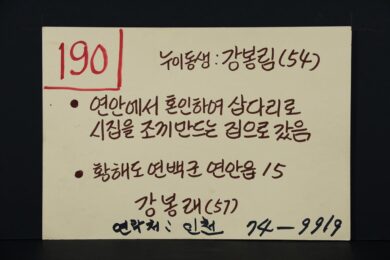 190
누이동생 : 강봉림(54)
• 연안에서 혼인하여 삽다리로
시집을 조끼만드는 집으로 갔음
• 황해도 연백군 연안읍 15
강봉래(57)
연락처 : 인천 74-9919